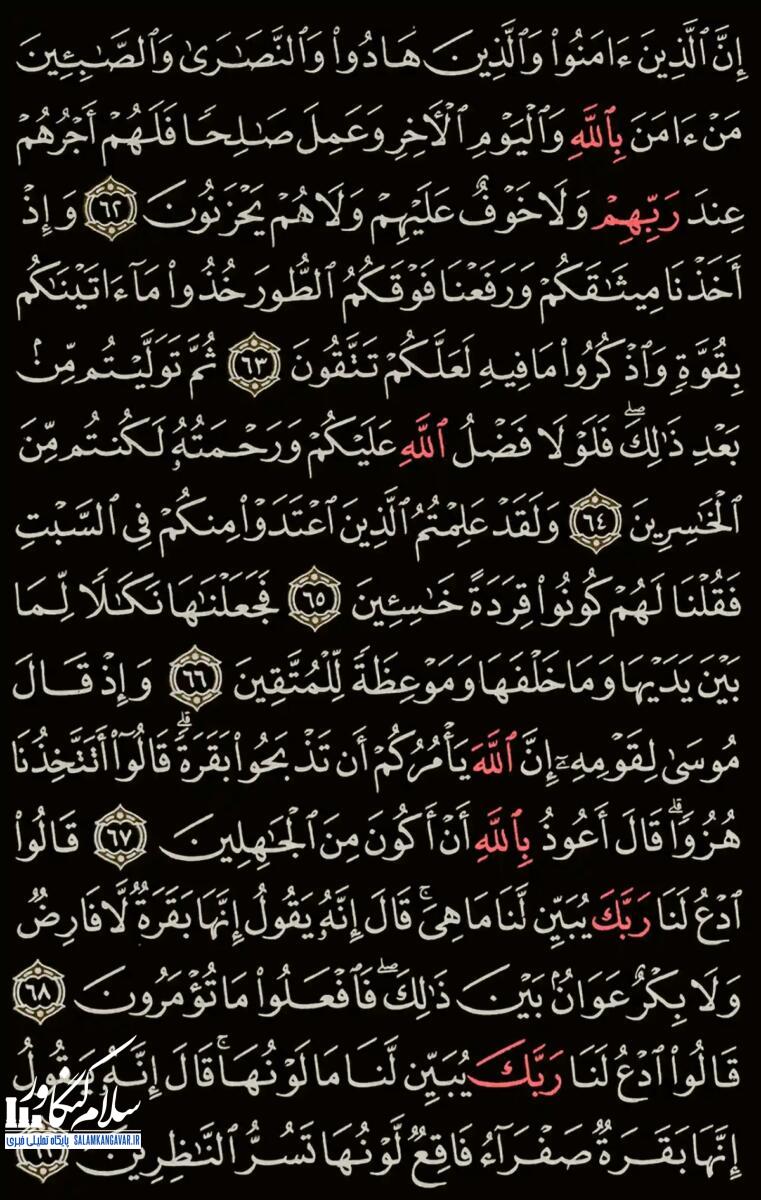 إِنَّ ٱلَّذِينَ ءَامَنُوا۟ وَٱلَّذِينَ هَادُوا۟ وَٱلنَّصَـٰرَىٰ وَٱلصَّـٰبِـِٔينَ
مَنْ ءَامَنَ بِٱللَّهِ وَٱلْيَوْمِ ٱلْـَٔاخِرِ وَعَمِلَ صَـٰلِحًا فَلَهُمْ أَجْرُهُمْ
عِندَ رَبِّهِمْ وَلَا خَوْفٌ عَلَيْهِمْ وَلَا هُمْ يَحْزَنُونَ ٦٢ وَإِذْ
أَخَذْنَا مِيثَـٰقَكُمْ وَرَفَعْنَا فَوْقَكُمُ ٱلطُّورَ خُذُوا۟ مَآ ءَاتَيْنَـٰكُم
بِقُوَّةٍ وَٱذْكُرُوا۟ مَا فِيهِ لَعَلَّكُمْ تَتَّقُونَ ٦٣ ثُمَّ تَوَلَّيْتُم مِّنۢ
بَعْدِ ذَٰلِكَ ۖ فَلَوْلَا فَضْلُ ٱللَّهِ عَلَيْكُمْ وَرَحْمَتُهُۥ لَكُنتُم مِّنَ
ٱلْخَـٰسِرِينَ ٦٤ وَلَقَدْ عَلِمْتُمُ ٱلَّذِينَ ٱعْتَدَوْا۟ مِنكُمْ فِى ٱلسَّبْتِ
فَقُلْنَا لَهُمْ كُونُوا۟ قِرَدَةً خَـٰسِـِٔينَ ٦٥ فَجَعَلْنَـٰهَا نَكَـٰلًا لِّمَا
بَيْنَ يَدَيْهَا وَمَا خَلْفَهَا وَمَوْعِظَةً لِّلْمُتَّقِينَ ٦٦ وَإِذْ قَالَ
مُوسَىٰ لِقَوْمِهِۦٓ إِنَّ ٱللَّهَ يَأْمُرُكُمْ أَن تَذْبَحُوا۟ بَقَرَةً ۖ قَالُوٓا۟ أَتَتَّخِذُنَا
هُزُوًا ۖ قَالَ أَعُوذُ بِٱللَّهِ أَنْ أَكُونَ مِنَ ٱلْجَـٰهِلِينَ ٦٧ قَالُوا۟
ٱدْعُ لَنَا رَبَّكَ يُبَيِّن لَّنَا مَا هِىَ ۚ قَالَ إِنَّهُۥ يَقُولُ إِنَّهَا بَقَرَةٌ لَّا فَارِضٌ
وَلَا بِكْرٌ عَوَانٌۢ بَيْنَ ذَٰلِكَ ۖ فَٱفْعَلُوا۟ مَا تُؤْمَرُونَ ٦٨
قَالُوا۟ ٱدْعُ لَنَا رَبَّكَ يُبَيِّن لَّنَا مَا لَوْنُهَا ۚ قَالَ إِنَّهُۥ يَقُولُ
إِنَّهَا بَقَرَةٌ صَفْرَآءُ فَاقِعٌ لَّوْنُهَا تَسُرُّ ٱلنَّـٰظِرِينَ
سلام کنگاور
پایگاه تحلیلی خبری SALAMKANGAVAR.IR